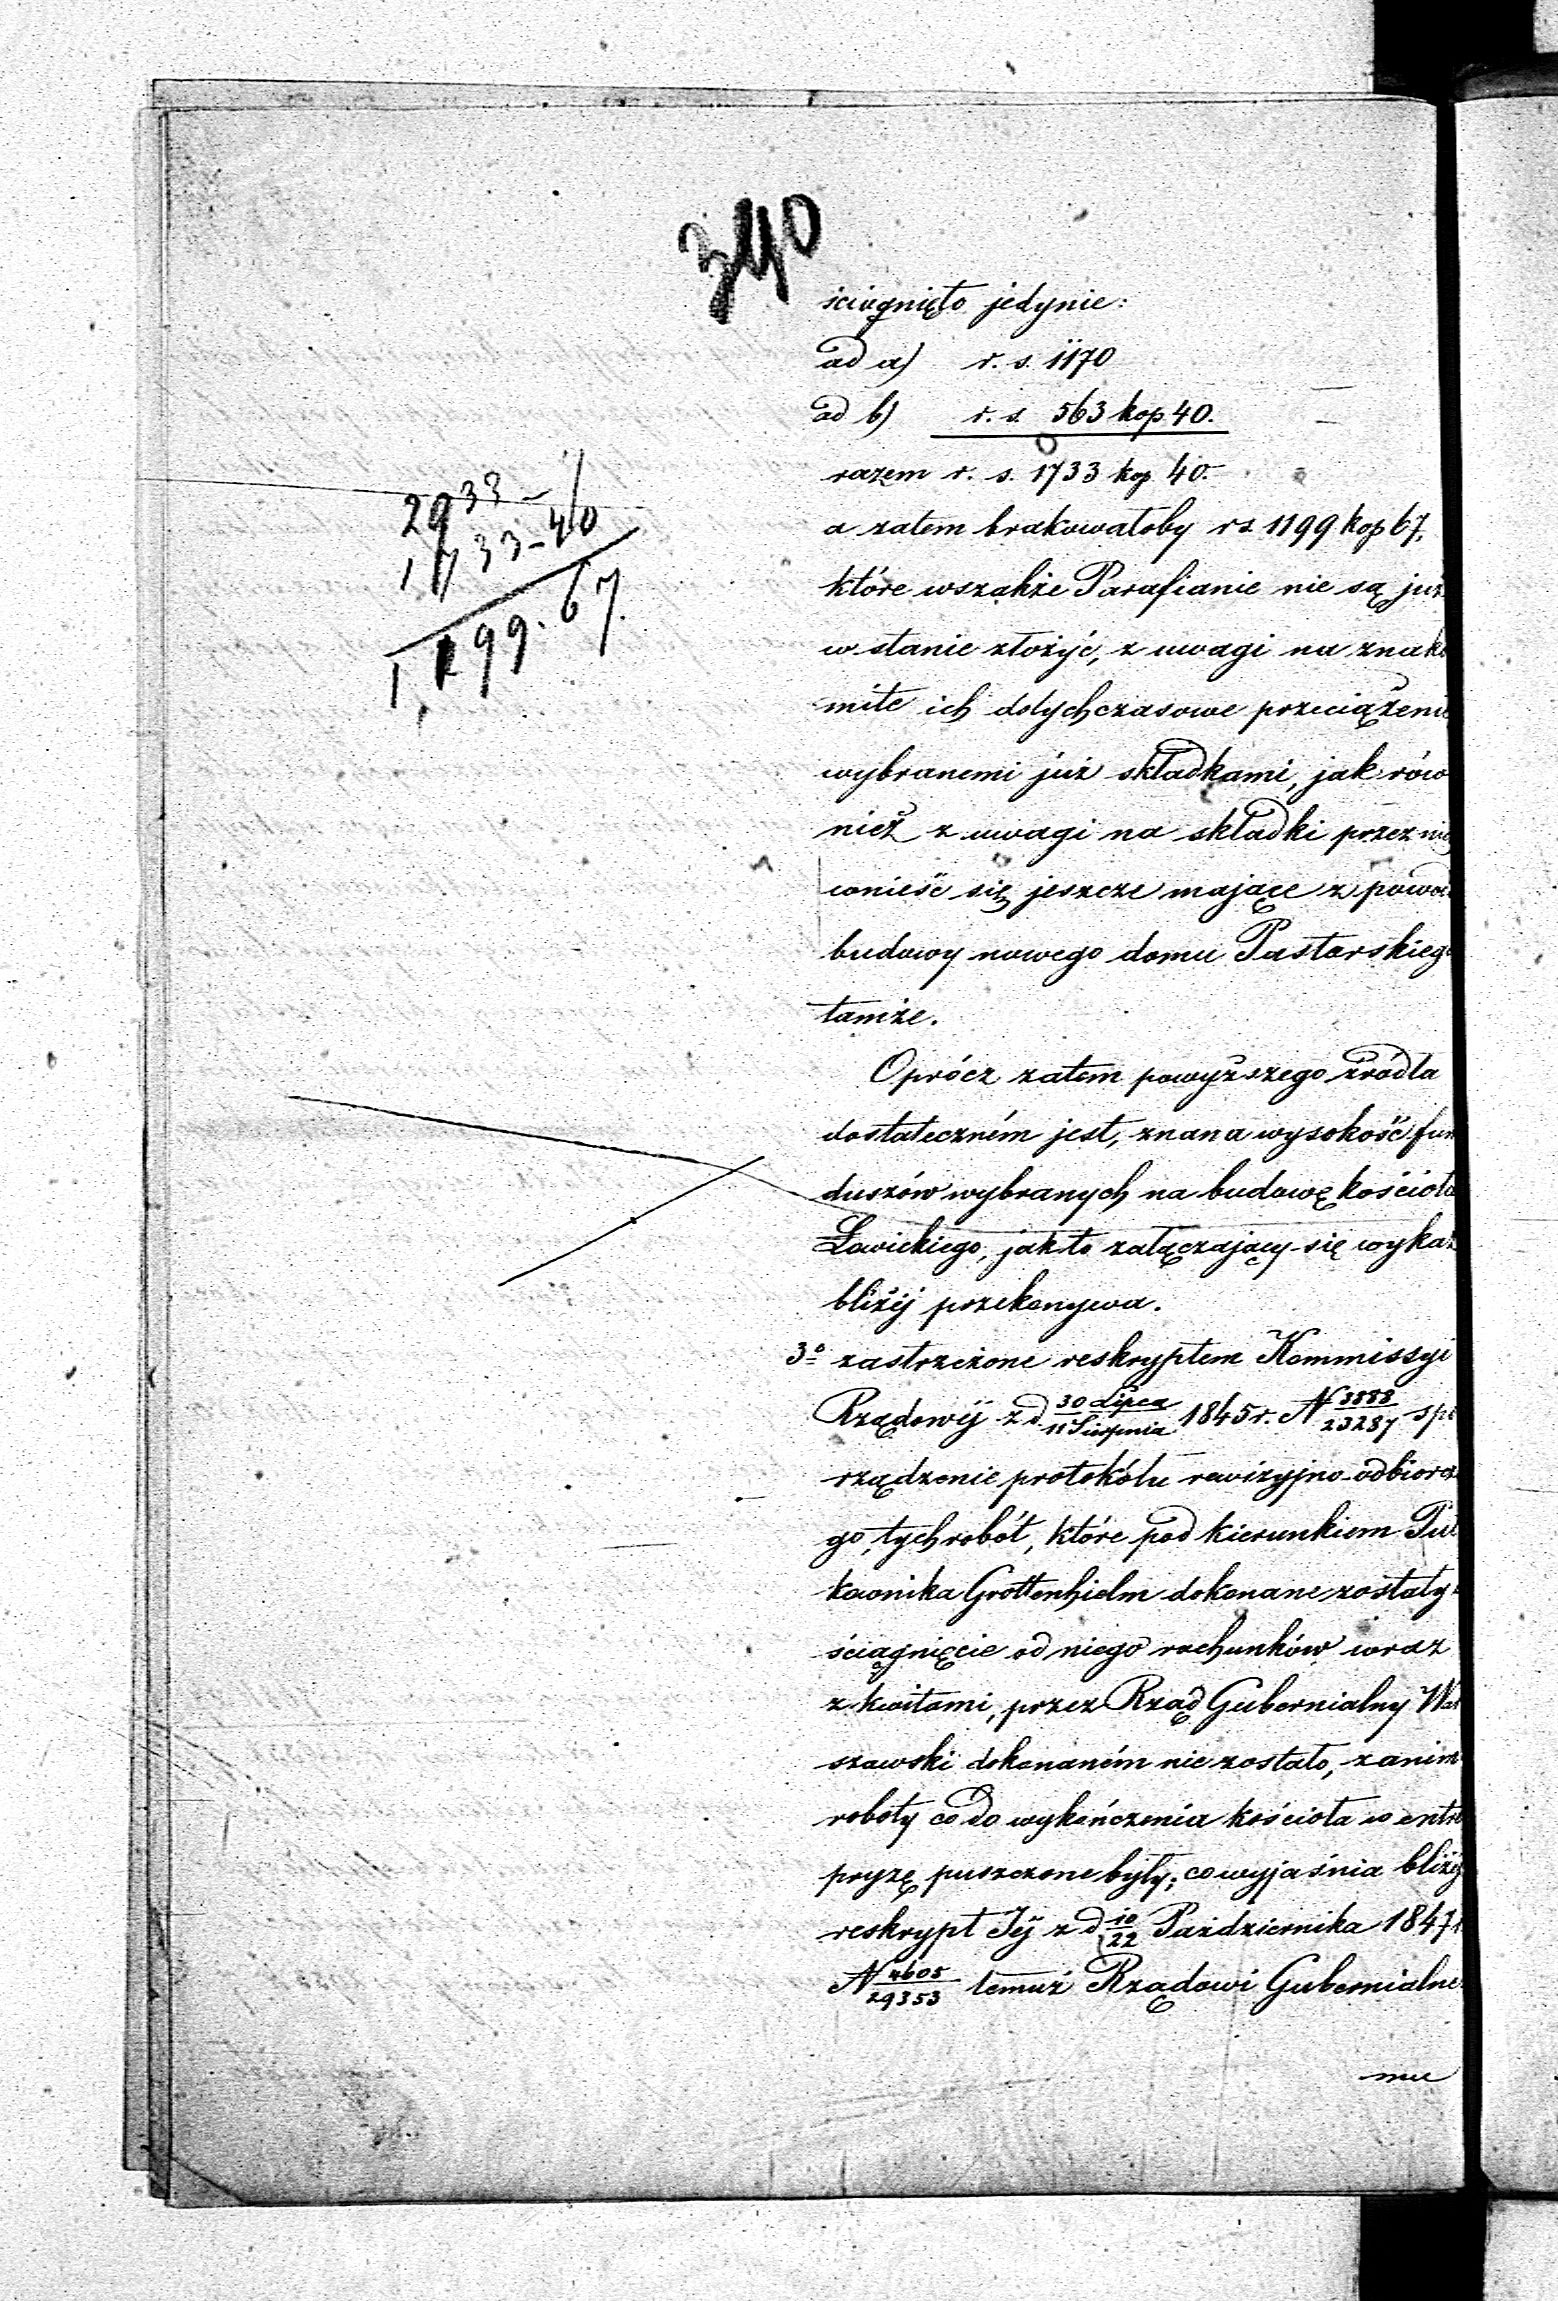 340
ściągnięto jedynie:
ad a) r. s. 1170
ad b) r. s. 563 kop 40.
razem r. s. 1733 kop 40.
a zatem brakowałoby rs 1199 kop 67,
które wszakże Parafianie nie są już
w stanie złożyć, z uwagi na znako
mite ich dotychczasowe przeciążenie
wybranemi już składkami, jak rów
nież z uwagi na składki przez nich
wnieść się jeszcze mające z powodu
budowy nowego domu Pastorskiego
tamże.
Oprócz zatem powyższego źródła
dostateczném jest, znana wysokość fun
duszów wybranych na budowę kościoła
Łowickiego, jak to załączający się wykaz
bliżéj przekonywa.
3o zastrzeżone reskryptem Kommissyi
Rządowéj z d. 30 Lipca / 11 Sierpnia 1845 r. N 3888 / 23287 spo
rządzenie protokółu rewizyjno-odbiorcze
go, tych robót, które pod kierunkiem Puł
kownika Grottenhielm dokonane zostały
ściągnięcie od niego rachunków wraz
z kwitami, przez Rząd Gubernialny War
szawski dokonaném nie zostało, zanim
roboty co do wykończenia kościoła w entre
pryzę puszczone były; co wyjaśnia bliżéj
reskrypt Jéj z d 10 / 22 Października 1847 r
N 4605 / 29353 temuż Rządowi Gubernialne
mu
2933 -
1733 - 40
1,199. 67.